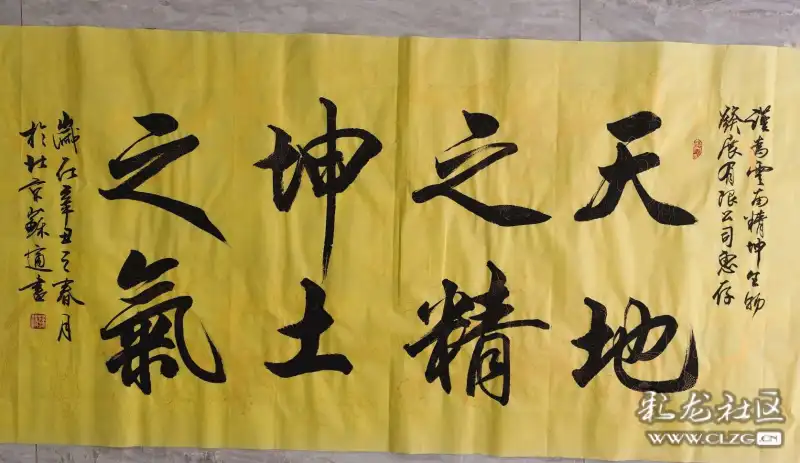 謹為雲南精坤生物
發展有限公司惠存
天地
之精
坤土
之氣
歲在辛丑之春月
於北京蘇適書
彩龙社区
WWW.CLZG.CN